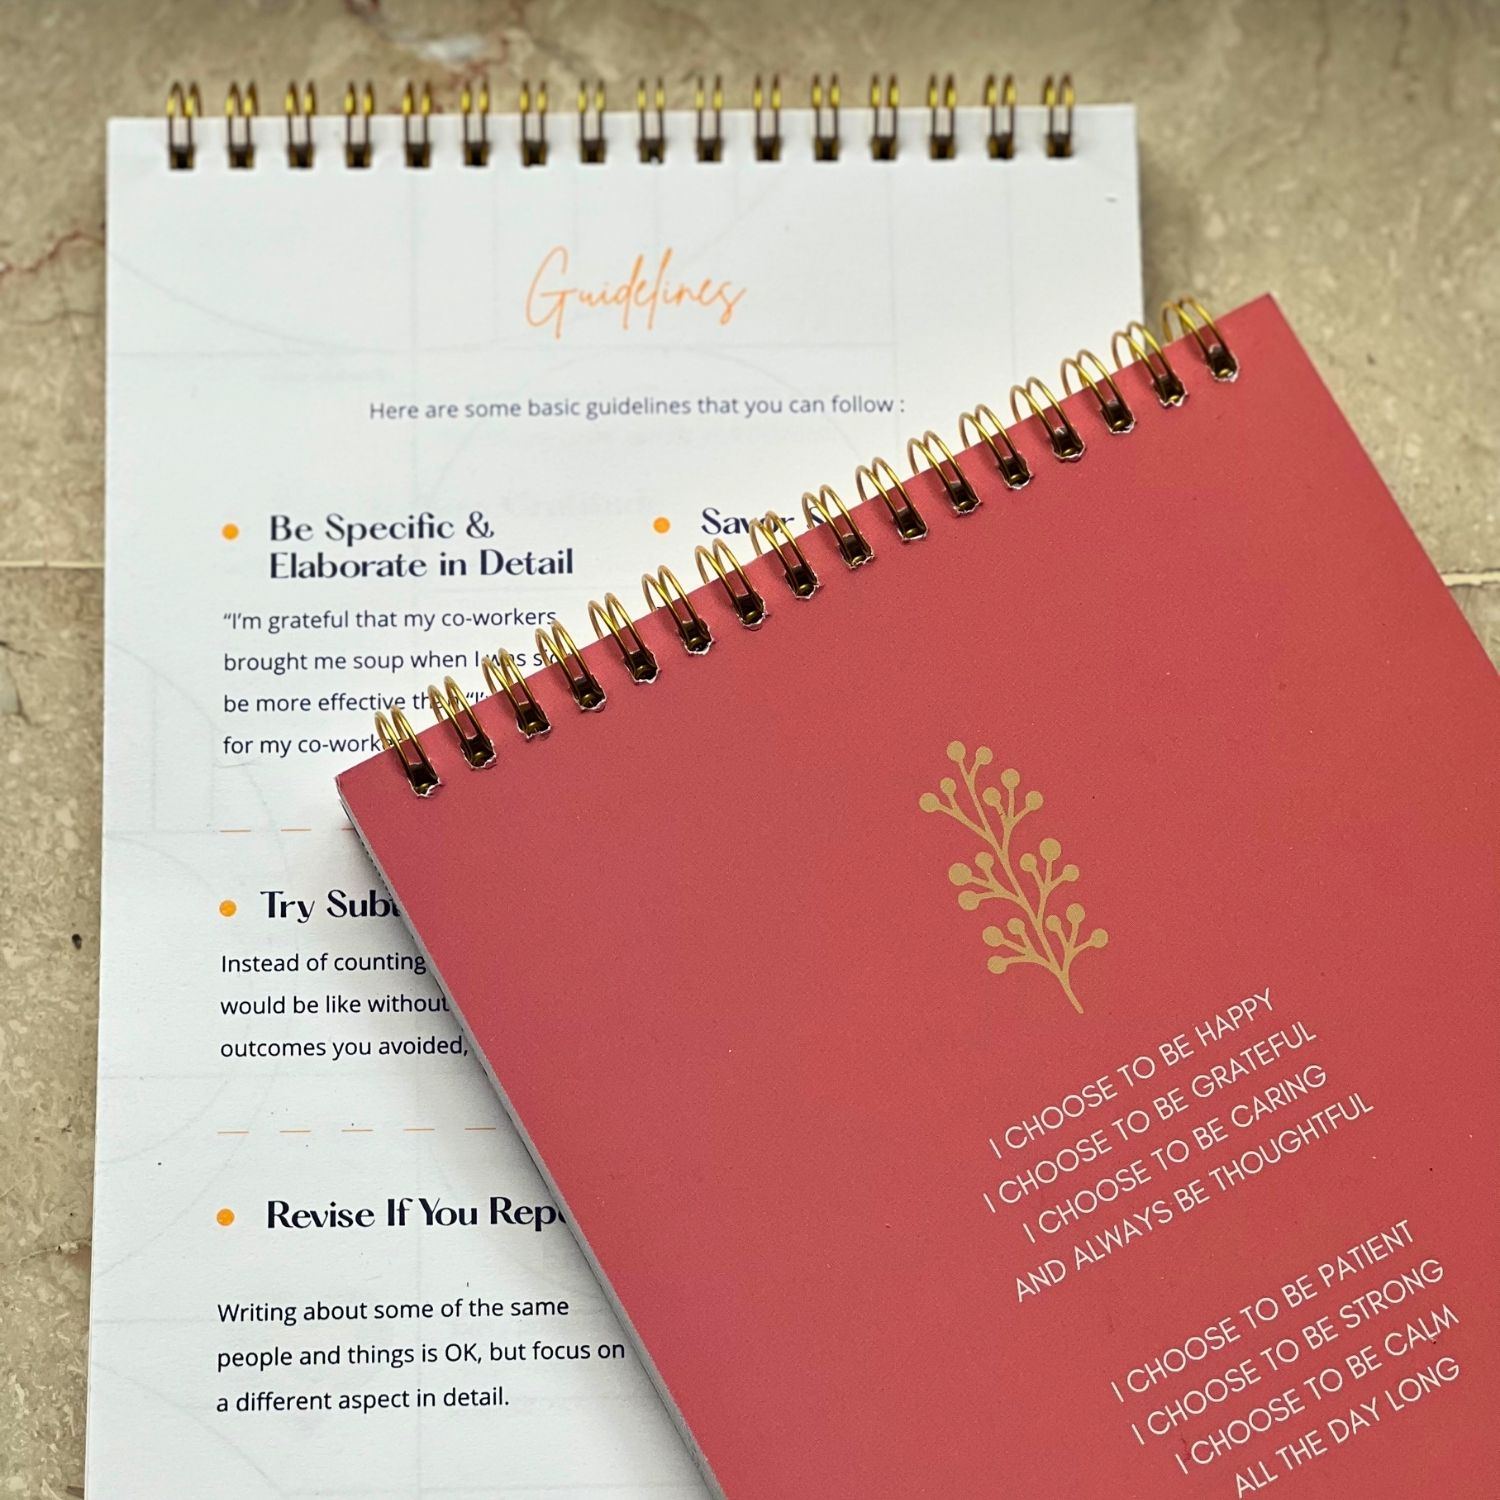 Guidelines
Here are some basic guidelines that you can follow :
Be Specific &
Elaborate in Detail
“I’m grateful that my co-workers
brought me soup when I was
be more effective than
for my
Try
Instead of counting
would be like without
outcomes you avoided,
Revise If You
Writing about some of the same
people and things is OK, but focus on
a different aspect in detail.
Savor
I CHOOSE TO BE HAPPY
I CHOOSE TO BE GRATEFUL
I CHOOSE TO BE CARING
AND ALWAYS BE THOUGHTFUL
I CHOOSE TO BE PATIENT
I CHOOSE TO BE STRONG
I CHOOSE TO BE CALM
ALL THE DAY LONG